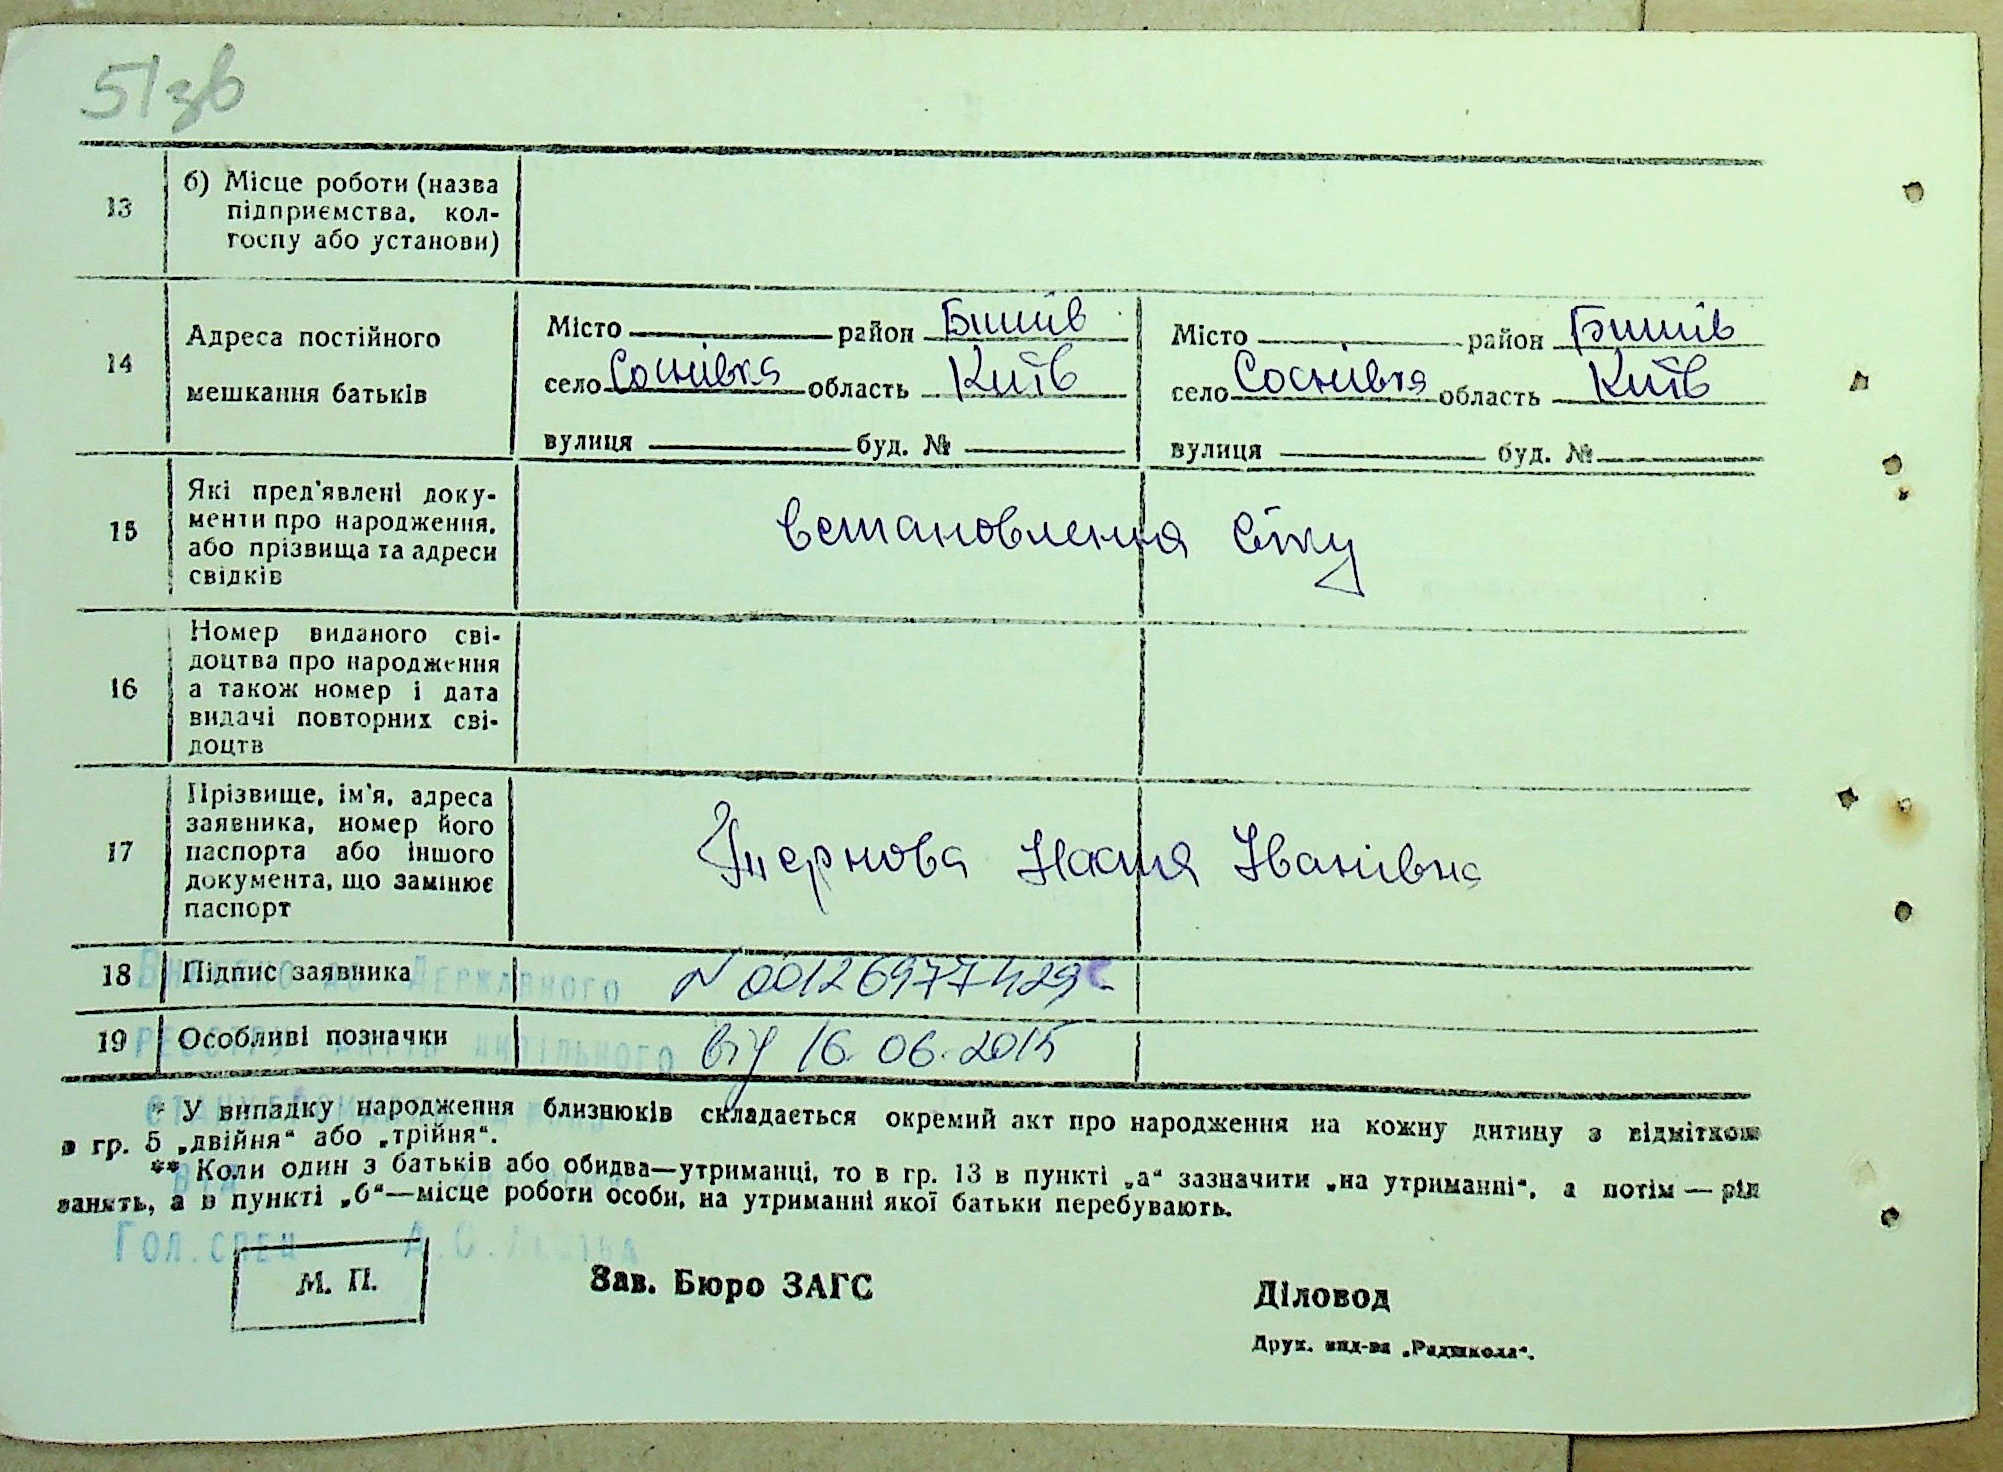 51зв
13
б) Місце роботи (назва
підприємства, кол-
госпу або установи)
14
Адреса постійного
мешкання батьків
Місто район Бишів
село Соснівка область Київ
вулиця буд. №
Місто район Бишів
село Соснівка область Київ
вулиця буд. №
15
Які пред'явлені доку-
менти про народження,
або прізвища та адреси
свідків
встановлення віку
16
Номер виданого сві-
доцтва про народження
а також номер і дата
видачі повторних сві-
доцтв
17
Прізвище, ім'я, адреса
заявника, номер його
паспорта або іншого
документа, що замінює
паспорт
Настя Іванівна
18
Підпис заявника
N 00126977429
19
Особливі позначки
від 16.06.2015
Внесено до Державного
реєстру актів цивільного
стану
* У випадку народження близнюків складається окремий акт про народження на кожну дитину з відміткою
в гр. 5 „двійня“ або „трійня“.
** Коли один з батьків або обидва—утриманці, то в гр. 13 в пункті „а“ зазначити „на утриманні“, а потім — рід
занять, а в пункті „б“—місце роботи особи, на утриманні якої батьки перебувають.
Гол.спец А.О.
М. П.
Зав. Бюро ЗАГС
Діловод
Друк. вид-ва „Радшкола“.